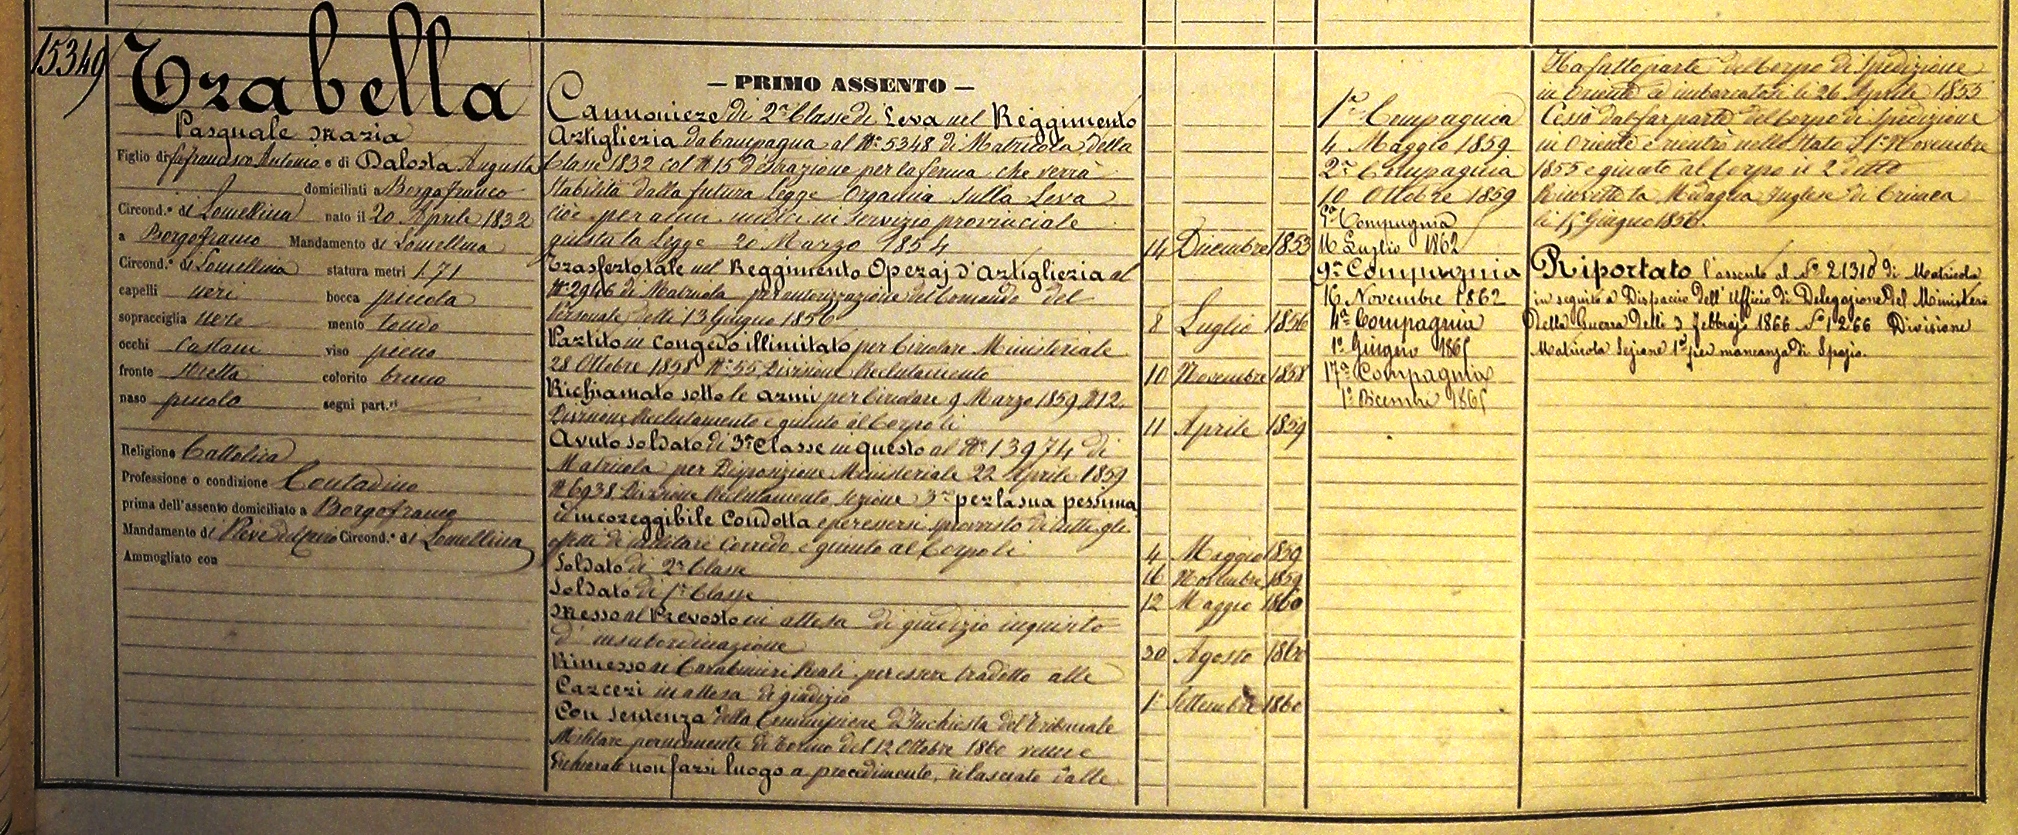 15349
Trabella
Pasquale Maria
Figlio di fu Francesco Antonio e di Dalosta Augusta
domiciliati a Borgofranco
Circond.º di Lomellina nato il 20 Aprile 1832
a Borgofranco Mandamento di Lomellina
Circond.º di Lomellina statura metri 1.71
capelli neri bocca piccola
sopracciglia nere mento tondo
occhi castani viso pieno
fronte stretta colorito bruno
naso piccolo segni part.ri
Religione Cattolica
Professione o condizione Contadino
prima dell'assento domiciliato a Borgofranco
Mandamento di Pieve del Cairo Circond.º di Lomellina
Ammogliato con
— PRIMO ASSENTO —
Cannoniere di 2ª Classe di Leva nel Reggimento
Artiglieria da Campagna al Nº 5348 di Matricola della
Classe 1832 col Nº 15 d'Estrazione per la ferma che verrà
stabilita dalla futura Legge Organica sulla Leva
cioè per anni undici in Servizio provinciale
giusta la Legge 20 Marzo 1854
14 Dicembre 1853
Trasferto tale nel Reggimento Operaj d'Artiglieria al
Nº 2946 di Matricola per autorizzazione del Comando del
Personale delli 13 Giugno 1856
8 Luglio 1856
Partito in Congedo illimitato per Circolare Ministeriale
28 Ottobre 1858 Nº 55 Divisione Reclutamento
10 Novembre 1858
Richiamato sotto le armi per Circolare 9 Marzo 1859 Nº 12,
Divisione Reclutamento e giunto al Corpo li
11 Aprile 1859
Avuto soldato di 3ª Classe in questo al Nº 13974 di
Matricola per Disposizione Ministeriale 22 Aprile 1859
Nº 6938 Divisione Reclutamento Sezione 3ª per la sua pessima
ed incoreggibile Condotta e per essersi sprovvisto di tutti gli
effetti di militare Corredo e giunto al Corpo li
4 Maggio 1859
Soldato di 2ª Classe
16 Novembre 1859
Soldato di 1ª Classe
12 Maggio 1860
Messo al Prevosto in attesa di giudizio inquisito
d'insubordinazione
30 Agosto 1860
Rimesso ai Carabinieri Reali per essere tradotto alle
Carceri in attesa di giudizio
1º Settembre 1860
Con Sentenza della Commissione d'Inchiesta del Tribunale
Militare permanente di Torino del 12 Ottobre 1860 venne
dichiarato non farsi luogo a procedimento, rilasciato dalle
1ª Compagnia
4 Maggio 1859
2ª Compagnia
10 Ottobre 1859
Compagnia
16 Luglio 1862
9ª Compagnia
16 Novembre 1862
4ª Compagnia
1º Giugno 1865
17ª Compagnia
1º Dicembre 1865
Ha fatto parte del Corpo di Spedizione
in Oriente ed imbarcatosi li 26 Aprile 1855
Cessò dal far parte del Corpo di Spedizione
in Oriente e rientrò nello Stato il 1º Novembre
1855 e giunto al Corpo il 2 detto
Ricevette la Medaglia Inglese di Crimea
li 15 Giugno 1856.
Riportato l'assento al Nº 21310 di Matricola
in seguito a Dispaccio dell'Uffizio di Delegazione del Ministero
della Guerra delli 3 Febbrajo 1866 Nº 1266 Divisione
Matricola Sezione 1ª per mancanza di Spazio.